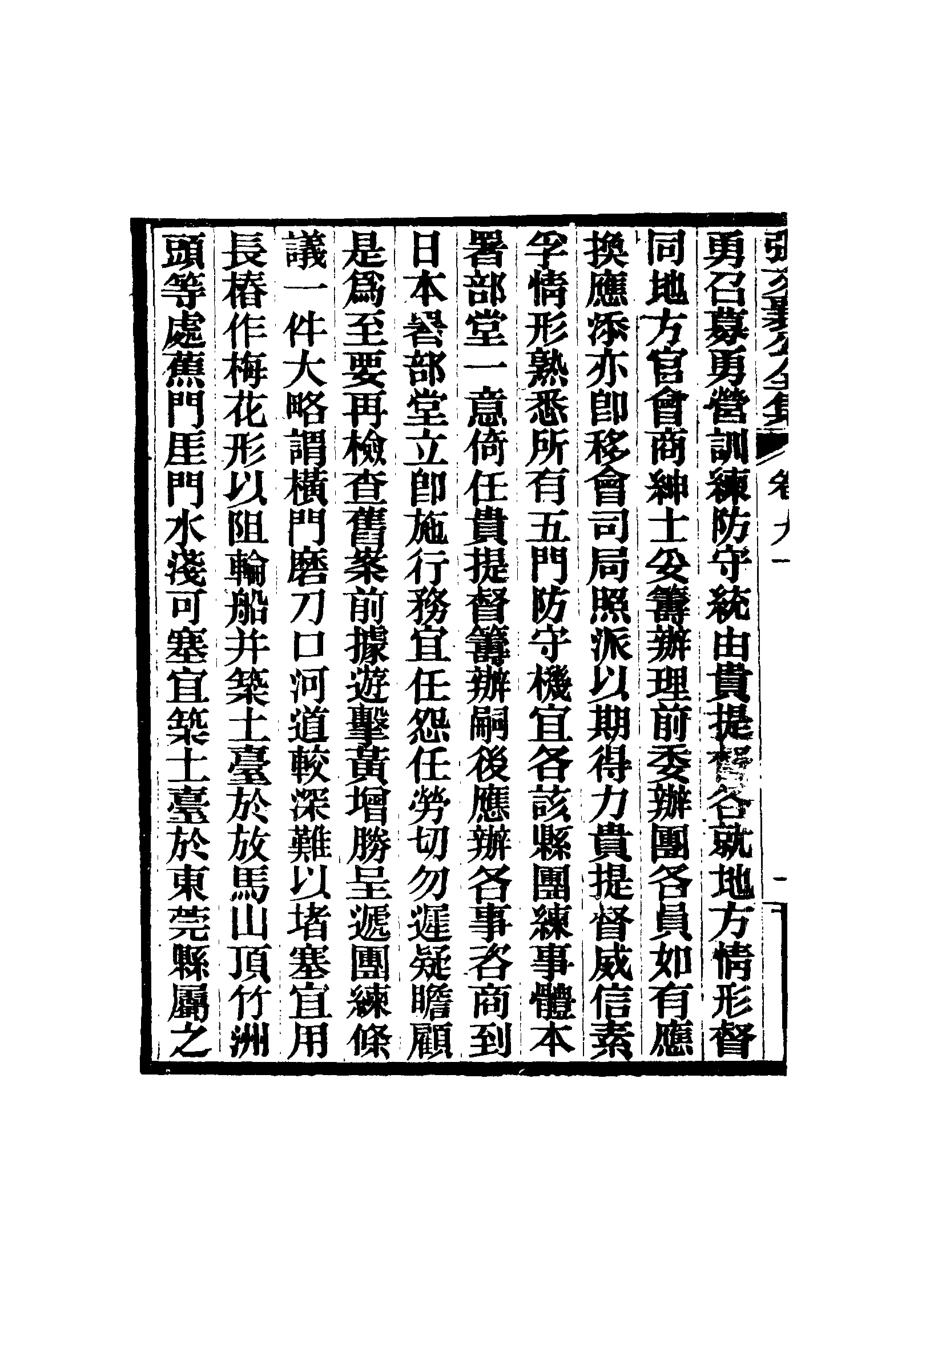 張文襄公全集 卷九一
勇召募勇營訓練防守統由貴提督各就地方情形督
同地方官會商紳士妥籌辦理前委辦團各員如有應
換應添亦卽移會司局照派以期得力貴提督威信素
孚情形熟悉所有五門防守機宜各該縣團練事體本
署部堂一意倚任貴提督籌辦嗣後應辦各事咨商到
日本署部堂立卽施行務宜任怨任勞切勿遲疑瞻顧
是爲至要再檢查舊案前據遊擊黃增勝呈遞團練條
議一件大略謂橫門磨刀口河道較深難以堵塞宜用
長樁作梅花形以阻輪船并築土臺於放馬山頂竹洲
頭等處蕉門厓門水淺可塞宜築土臺於東莞縣屬之